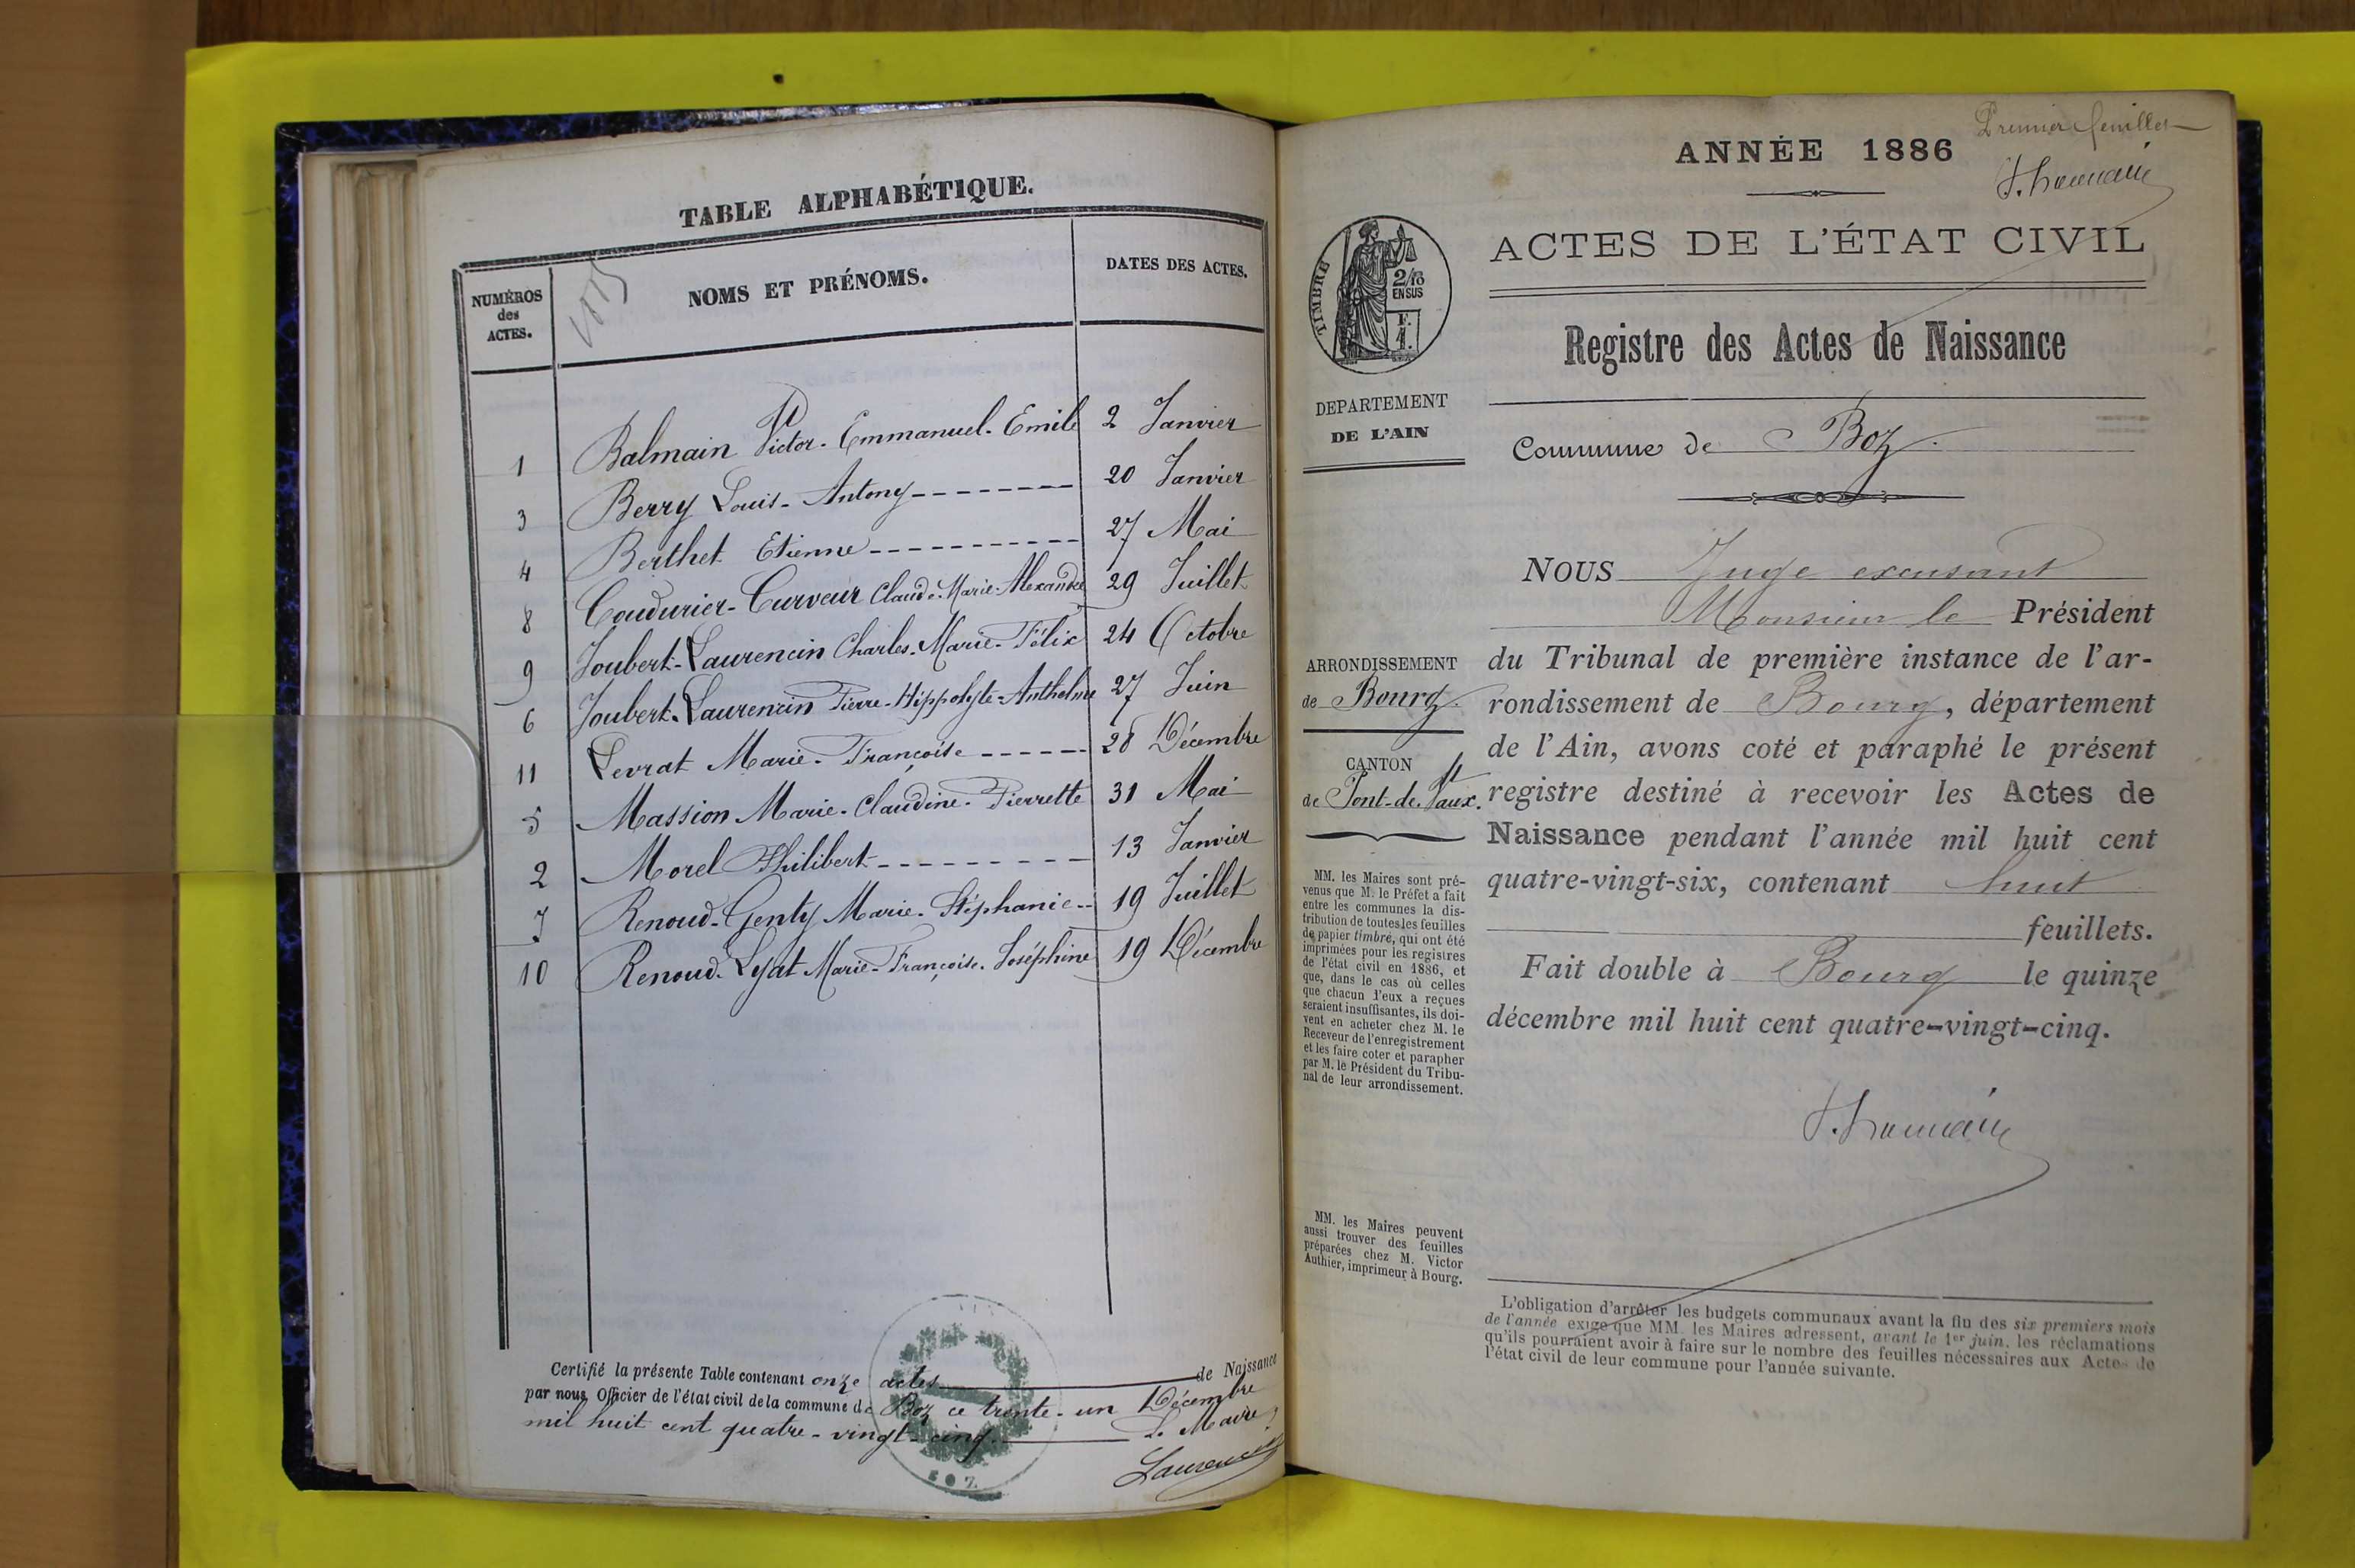 TABLE ALPHABÉTIQUE.
NUMÉROS des ACTES.
NOMS ET PRÉNOMS.
DATES DES ACTES.
1 Balmain Victor-Emmanuel-Emile 2 Janvier
3 Berry Louis-Antony 20 Janvier
4 Berthet Etienne 27 Mai
8 Coudurier-Curveur Claude-Marie-Alexandre 29 Juillet
9 Joubert-Laurencin Charles-Marie-Félix 24 Octobre
6 Joubert-Laurencin Pierre-Hippolyte-Anthelme 27 Juin
11 Levrat Marie-Françoise 28 Décembre
5 Massion Marie-Claudine-Pierrette 31 Mai
2 Morel Philibert 13 Janvier
7 Renoud-Genty Marie-Stéphanie 19 Juillet
10 Renoud-Lyat Marie-Françoise-Joséphine 19 Décembre
Certifié la présente Table contenant onze actes de Naissance
par nous Officier de l'état civil de la commune de Boz ce trente-un Décembre
mil huit cent quatre-vingt-cinq. Le Maire
Laurencin
BOZ
Premier feuillet
ANNÉE 1886
ACTES DE L'ÉTAT CIVIL
TIMBRE
2/10
EN SUS
F.
1.
Registre des Actes de Naissance
DEPARTEMENT
DE L'AIN
Commune de Boz.
NOUS Juge excusant
Monsieur le Président
ARRONDISSEMENT
de Bourg.
CANTON
de Pont-de-Vaux.
du Tribunal de première instance de l'ar-
rondissement de Bourg, département
de l'Ain, avons coté et paraphé le présent
registre destiné à recevoir les Actes de
Naissance pendant l'année mil huit cent
quatre-vingt-six, contenant huit
feuillets.
Fait double à Bourg le quinze
décembre mil huit cent quatre-vingt-cinq.
MM. les Maires sont pré-
venus que M. le Préfet a fait
entre les communes la dis-
tribution de toutes les feuilles
de papier timbré, qui ont été
imprimées pour les registres
de l'état civil en 1886, et
que, dans le cas où celles
que chacun d'eux a reçues
seraient insuffisantes, ils doi-
vent en acheter chez M. le
Receveur de l'enregistrement
et les faire coter et parapher
par M. le Président du Tribu-
nal de leur arrondissement.
MM. les Maires peuvent
aussi trouver des feuilles
préparées chez M. Victor
Authier, imprimeur à Bourg.
L'obligation d'arrêter les budgets communaux avant la fin des six premiers mois
de l'année exige que MM. les Maires adressent, avant le 1er juin, les réclamations
qu'ils pourraient avoir à faire sur le nombre des feuilles nécessaires aux Actes de
l'état civil de leur commune pour l'année suivante.